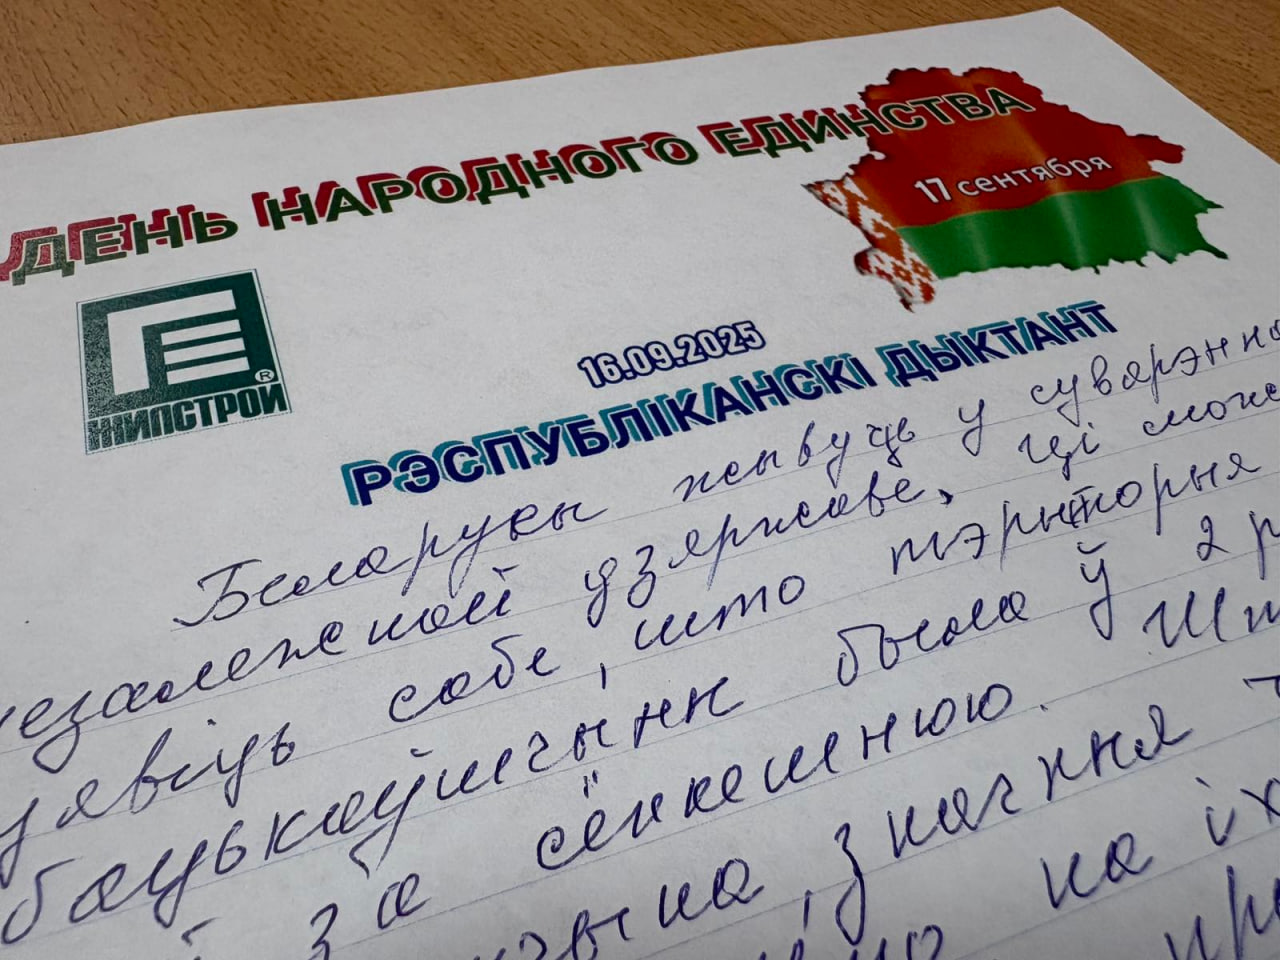 ДЕНЬ НАРОДНОГО ЕДИНСТВА
17 сентября
НИПСТРОЙ
16.09.2025
РЭСПУБЛІКАНСКІ ДЫКТАНТ
Беларусы жывуць у суверэнна
незалежнай дзяржаве, ці можа
уявіць сабе, што тэрыторыя
бацькаўшчыны была ў 2 р
за сёняшнюю.
значная
на іх